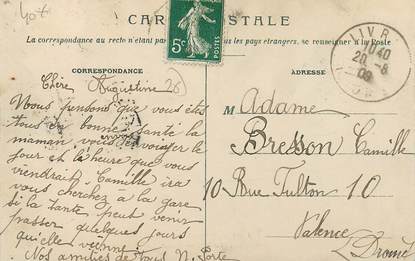 40x
CARTE POSTALE
La correspondance au recto n'étant pas tous les pays étrangers, se renseigner à la Poste
5c
LIVR
10 40
20 - 8
09
CORRESPONDANCE
ADRESSE
26
Chère Augustine
Nous pensons que vous êtes
tous en bonne santé la
maman vous envoyer le
jour et l'heure que vous
viendrait Camille ira
vous cherchez a la gare
si la tante peut venir
passer quelques jours
qu'elle vienne
Nos amitiés de tous N. Porte
Madame
Bresson Camille
10 Rue Fulton 10
Valence
Drome